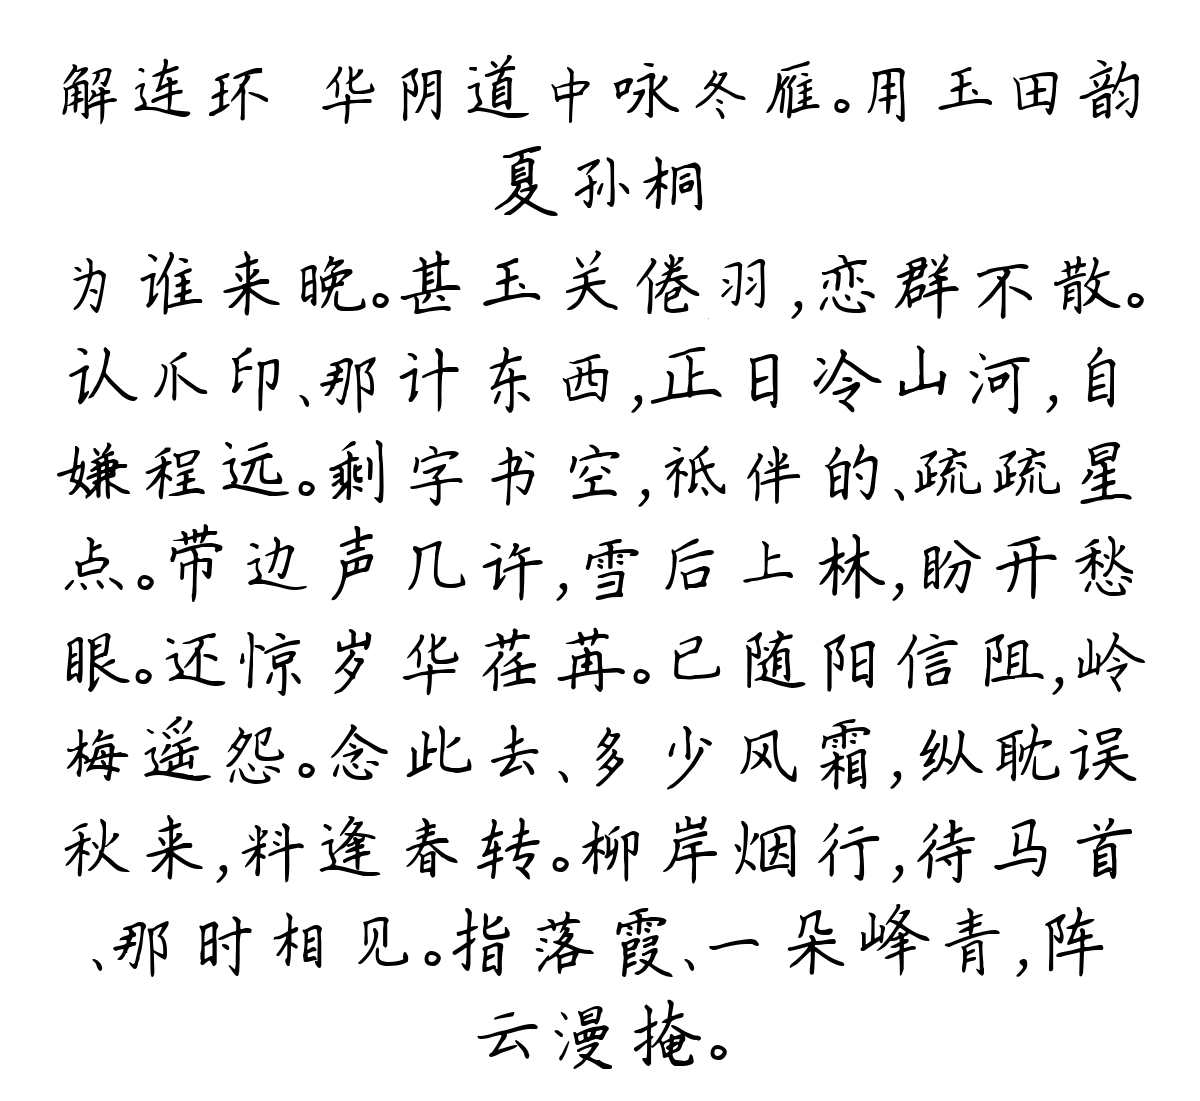 解连环 华阴道中咏冬雁。用玉田韵
夏孙桐
为谁来晚。甚玉关倦羽,恋群不散。
认爪印、那计东西,正日冷山河,自
嫌程远。剩字书空,祗伴的、疏疏星
点。带边声几许,雪后上林,盼开愁
眼。还惊岁华荏苒。已随阳信阻,岭
梅遥怨。念此去、多少风霜,纵耽误
秋来,料逢春转。柳岸烟行,待马首
、那时相见。指落霞、一朵峰青,阵
云漫掩。